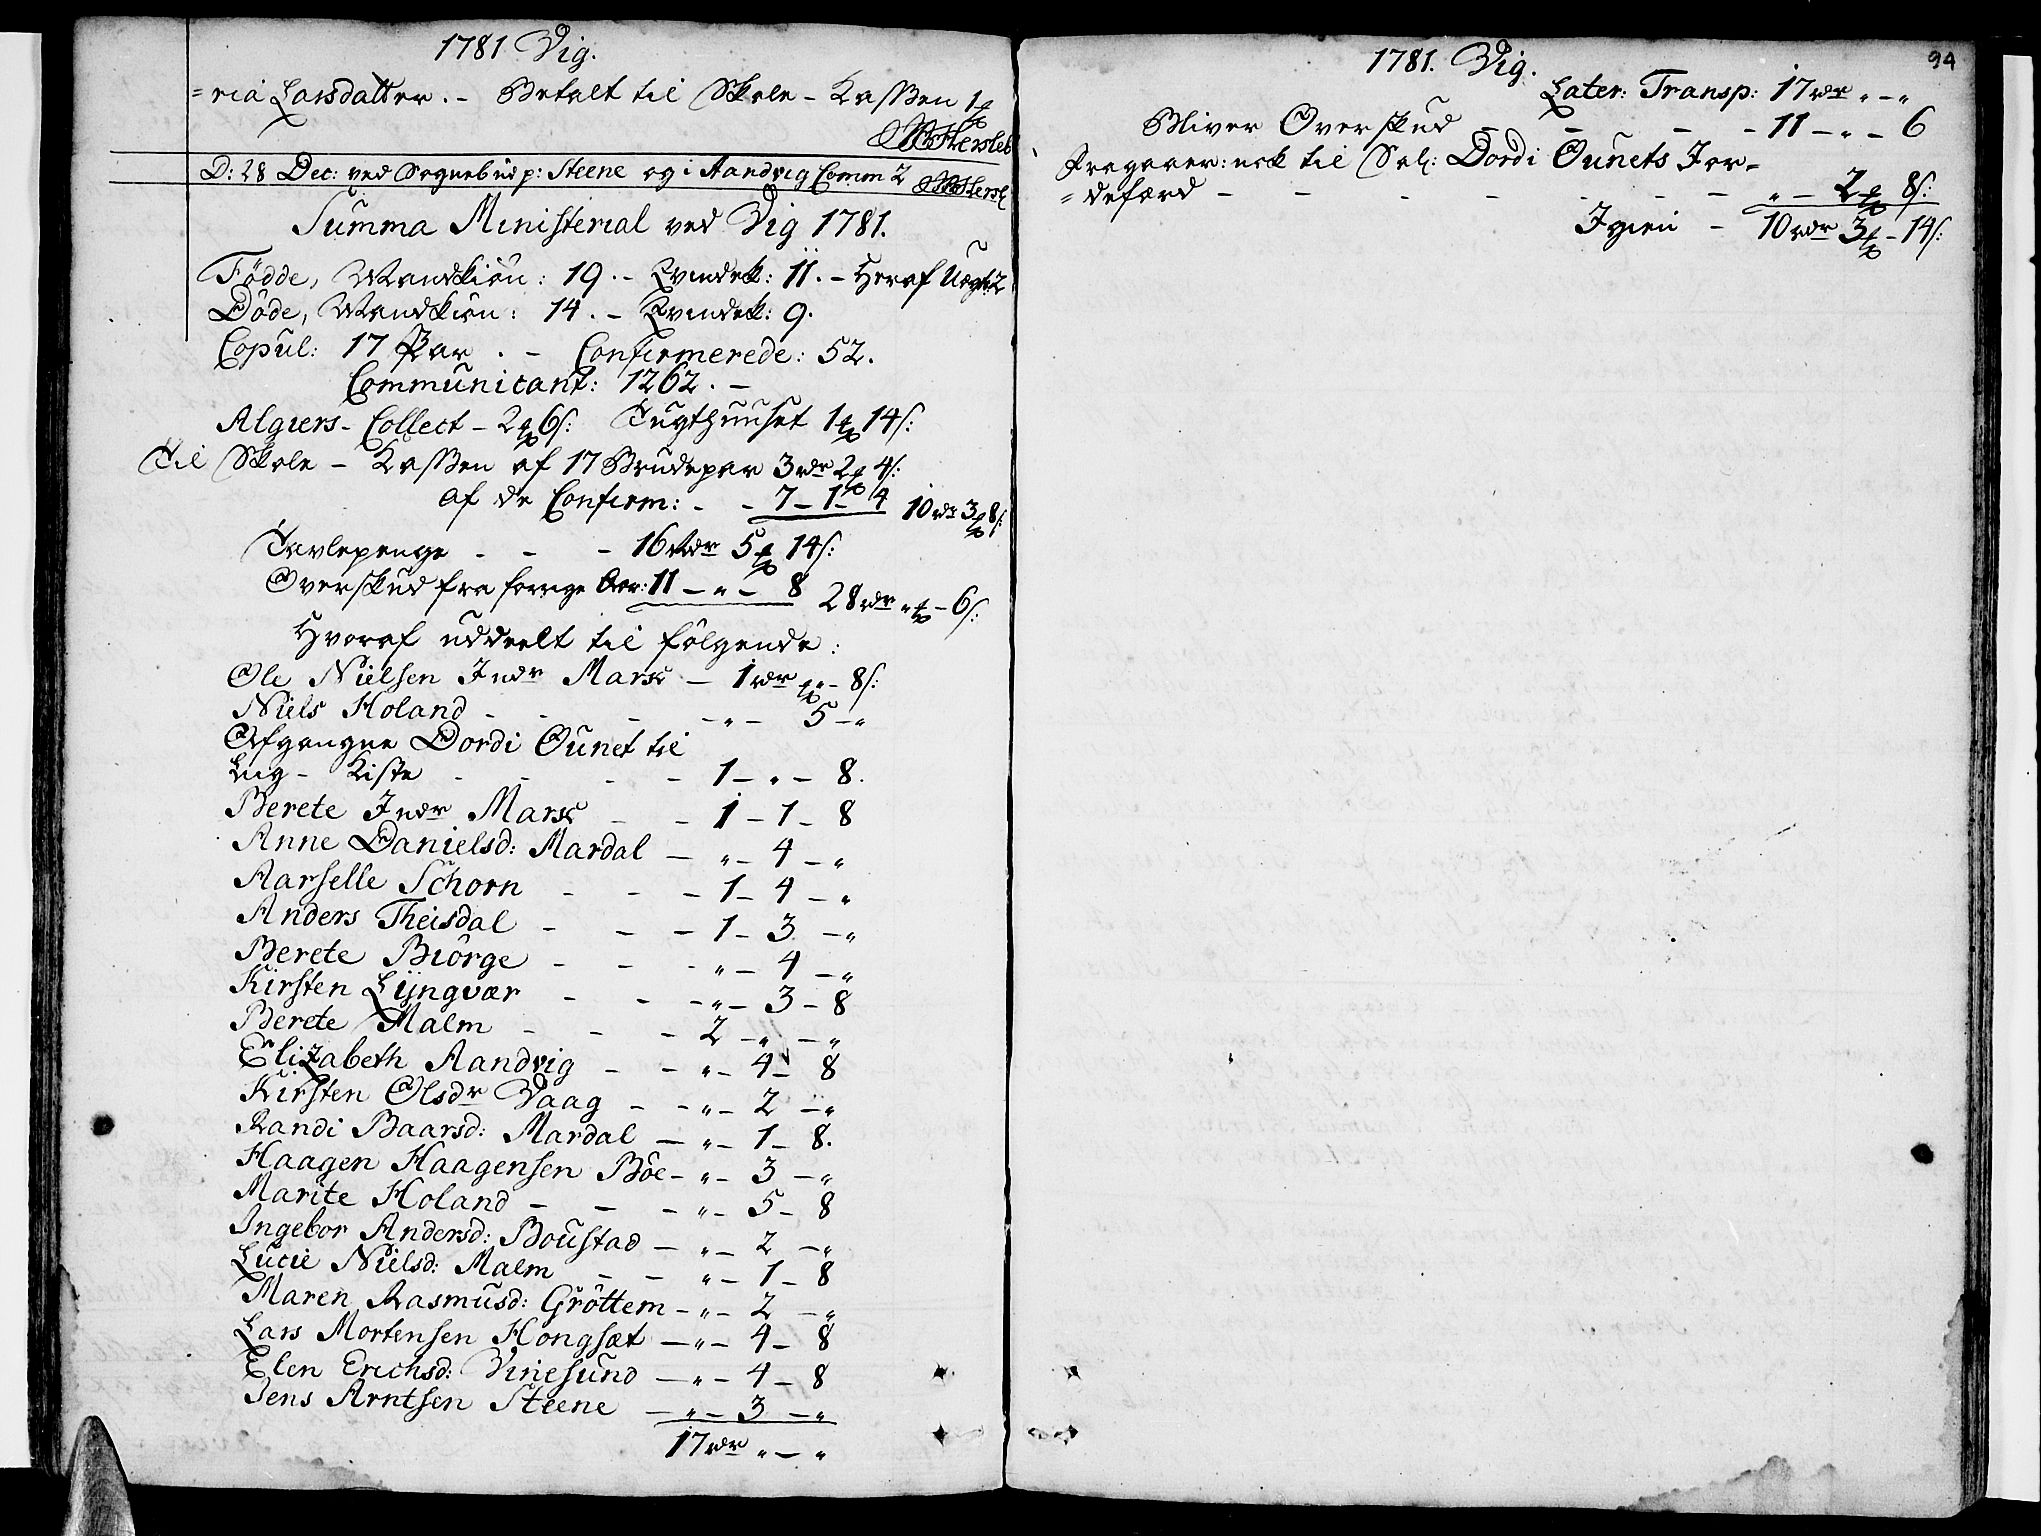 1781 Vig.
=ria Larsdatter. - Betalt til Skole - Kassen 1
D: 28 Dec: ved Sognebud p: Steene og i Aandvig Comm 2
Summa Ministerial ved Vig 1781.
Födde, Mandkiön: 19. - Qvindek: 11. - Heraf Uægte 2
Döde, Mandkiön: 14. - Qvindek: 9.
Copul: 17 Par. - Confirmerede: 52.
Communicant: 1262. -
Algiers - Collect - 2 6 s: Tugthuuset 1 14 s:
Til Skole - Kassen af 17 Brudepar 3 rdr 2 4 s:
af de Confirm: - - 7 - 1 - 4 10 rdr 3 8 s:
Tavlepenge - - - 16 Rdr 5 14 s:
Overskud fra forrige Aar: 11 - „ - 8 28 rdr „ - 6 s:
Hvoraf uddeelt til fölgende:
Ole Nielsen Indr Marsc - 1 rdr „ - 8 s:
Niels Holand - - - - „ - 5 - „
Afgangne Dordi Öunet til
Liig - Kiste - - - - 1 - „ - 8.
Berete Indr Marsc - - 1 - 1 - 8
Anne Danielsd: Mardal - „ - 4 - „
Aarselle Schorn - - - 1 - 4 - „
Anders Theisdal - - - 1 - 3 - „
Berete Biörge - - - „ - 4 - „
Kirsten Lÿngvær - - - „ - 3 - 8
Berete Malm - - - 2 - „ - „
Elizabeth Aandvig - - „ - 4 - 8
Kirsten Olsdr Vaag - - „ - 2 - „
Randi Baarsd: Mardal - „ - 1 - 8.
Haagen Haagensen Böe - „ - 3 - „
Marite Holand - - - „ - 5 - 8
Ingebor Andersd: Boustad - „ - 2 - „
Lucie Nielsd: Malm - - „ - 1 - 8
Maren Rasmusd: Gröttem - „ - 2 - „
Lars Mortensen Hongsæt - „ - 4 - 8
Elen Erichsd: Viriesund - „ - 4 - 8
Jens Arntsen Steene - „ - 3 - „
17 rdr „ - „
1781. Vig.
94
Later: Transp: 17 rdr „ - „
Bliver Overskud - - - - 11 - „ - 6
Fragaaer: nok til Sal: Dordi Öunets Jor-
=defærd - - - - - - - „ - 2 8 s:
Igien - 10 rdr 3 - 14 s: